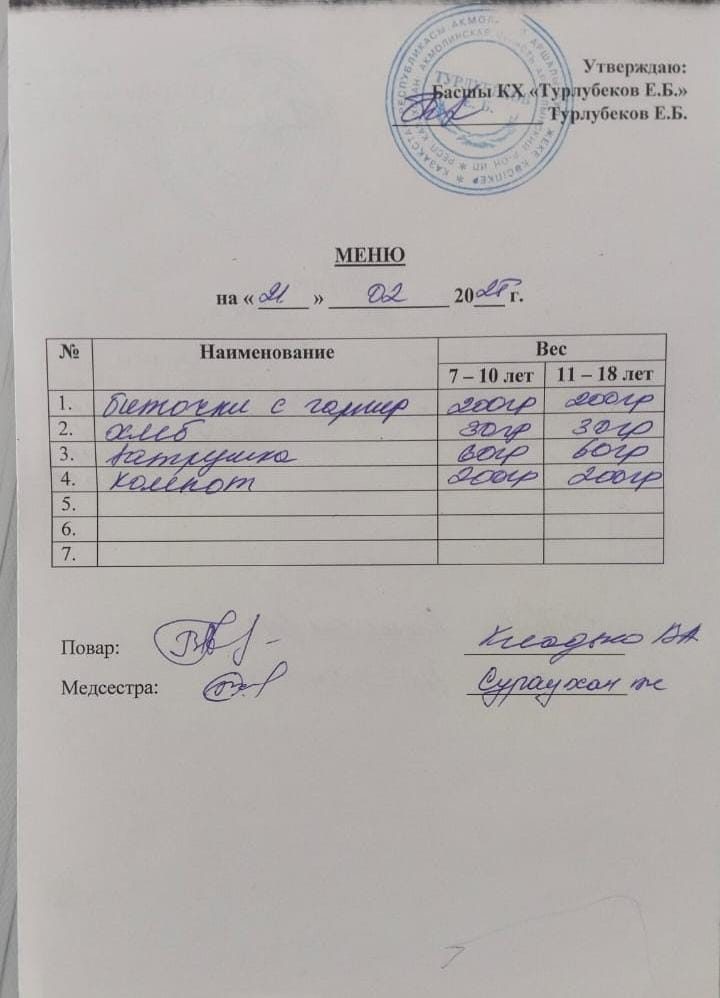 Утверждаю:
Басшы КХ «Турлубеков Е.Б.»
Турлубеков Е.Б.
ТУРЛУБЕКОВ
Е. Б.
МЕНЮ
на « 21 » 02 2025 г.
№ Наименование Вес
7 – 10 лет 11 – 18 лет
1. биточки с гарнир 200гр 200гр
2. хлеб 30гр 30гр
3. ватрушка 60гр 60гр
4. компот 200гр 200гр
5.
6.
7.
Повар:
Медсестра: Сураухан